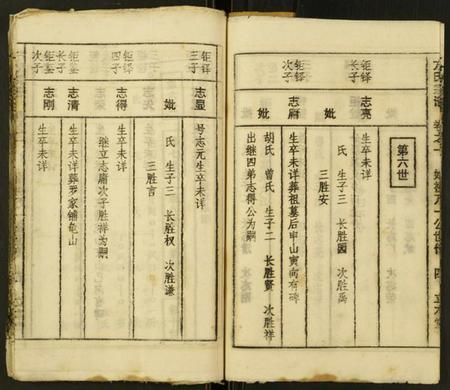 第六世
钜铎
长子
志亮
生卒未详
妣
氏 生子三 长胜园 次胜禹
三胜安
钜铎
次子
志庸
生卒未详葬祖墓后申山寅向有碑
妣
胡氏 曾氏 生子二 长胜贤 次胜祥
出继四弟志得公为嗣
钜铎
三子
志显
号志元生卒未详
妣
氏 生子三 长胜权 次胜谦
三胜言
钜铎
四子
志得
生卒未详
继立志庸次子胜祥为嗣
钜銮
长子
志清
生卒未详葬罗家铺龟山
钜銮
次子
志刚
生卒未详